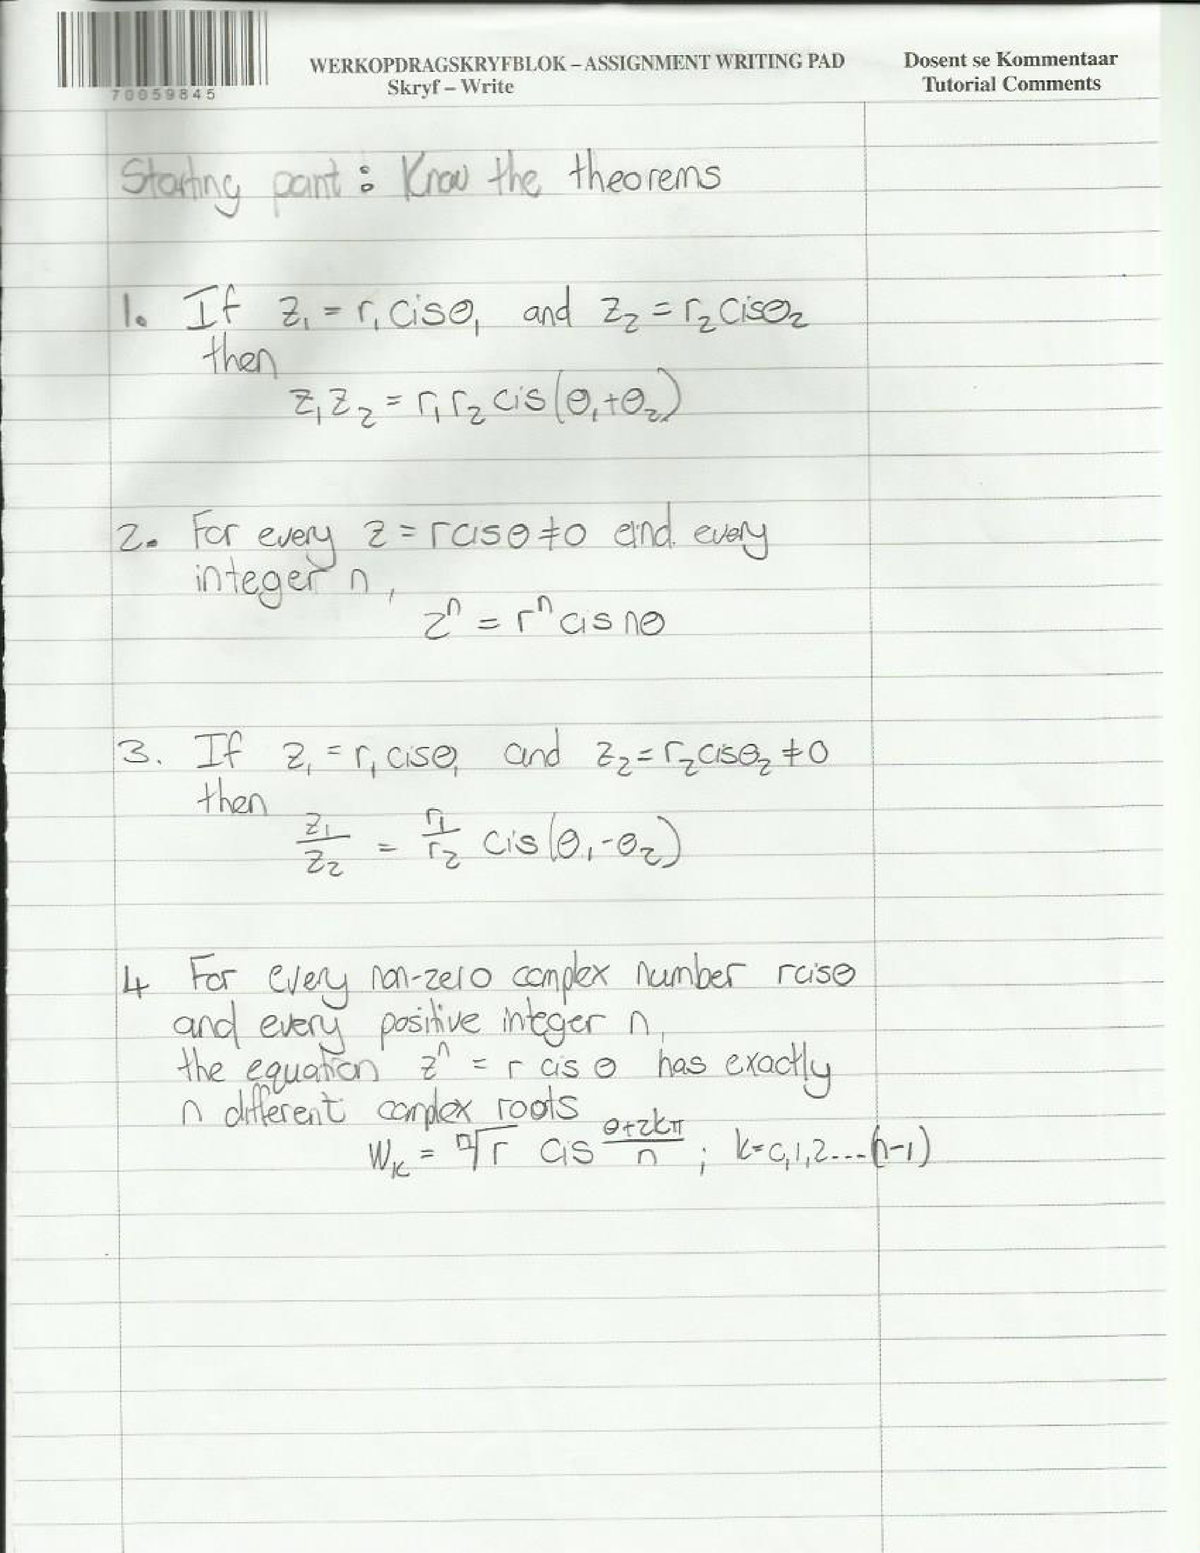 70059845
WERKOPDRAGSKRYFBLOK – ASSIGNMENT WRITING PAD
Skryf – Write
Dosent se Kommentaar
Tutorial Comments
Starting point: Know the theorems
1. If z₁ = r₁ cisθ₁ and z₂ = r₂ cisθ₂
then
z₁z₂ = r₁r₂ cis(θ₁+θ₂)
2. For every z = r cisθ ≠ 0 and every
integer n,
zⁿ = rⁿ cis nθ
3. If z₁ = r₁ cisθ₁ and z₂ = r₂ cisθ₂ ≠ 0
then
z₁/z₂ = r₁/r₂ cis(θ₁-θ₂)
4 For every non-zero complex number rcisθ
and every positive integer n,
the equation zⁿ = r cis θ has exactly
n different complex roots
Wₖ = ⁿ√r cis (θ+2kπ)/n ; k=0,1,2...(n-1)